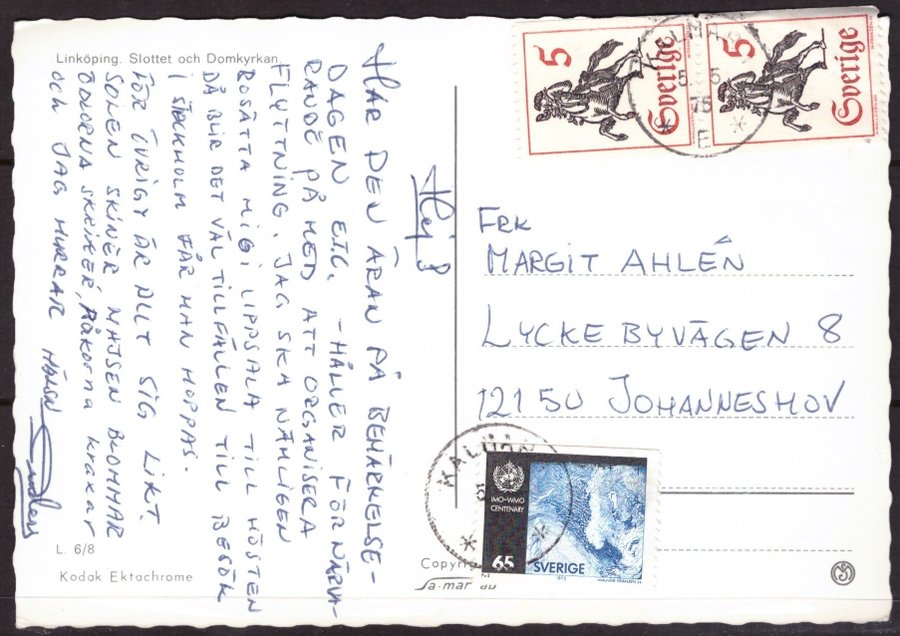 Linköping. Slottet och Domkyrkan.
Hej!
HAR DEN ÄRAN PÅ BEMÄRKELSE-
DAGEN ETC. - HÅLLER FÖR NÄRVA-
RANDE PÅ MED ATT ORGANISERA
FLYTTNING. JAG SKA NÄMLIGEN
BOSÄTTA MIG I UPPSALA TILL HÖSTEN
DÅ BLIR DET VÄL TILLFÄLLEN TILL BESÖK
I STOCKHOLM FÅR MAN HOPPAS.
FÖR ÖVRIGT ÄR ALLT SIG LIKT.
SOLEN SKINER MAJSEN BLOMMAR
SKRIKER, RÅKORNA KRAXAR
OCH JAG HURRAR
Anders
L. 6/8
Kodak Ektachrome
5
Sverige
5
Sverige
KALMAR
5 5
75
E
FRK
MARGIT AHLÉN
LYCKEBYVÄGEN 8
121 50 JOHANNESHOV
KALMAR
IMO-WMO
CENTENARY
65
SVERIGE